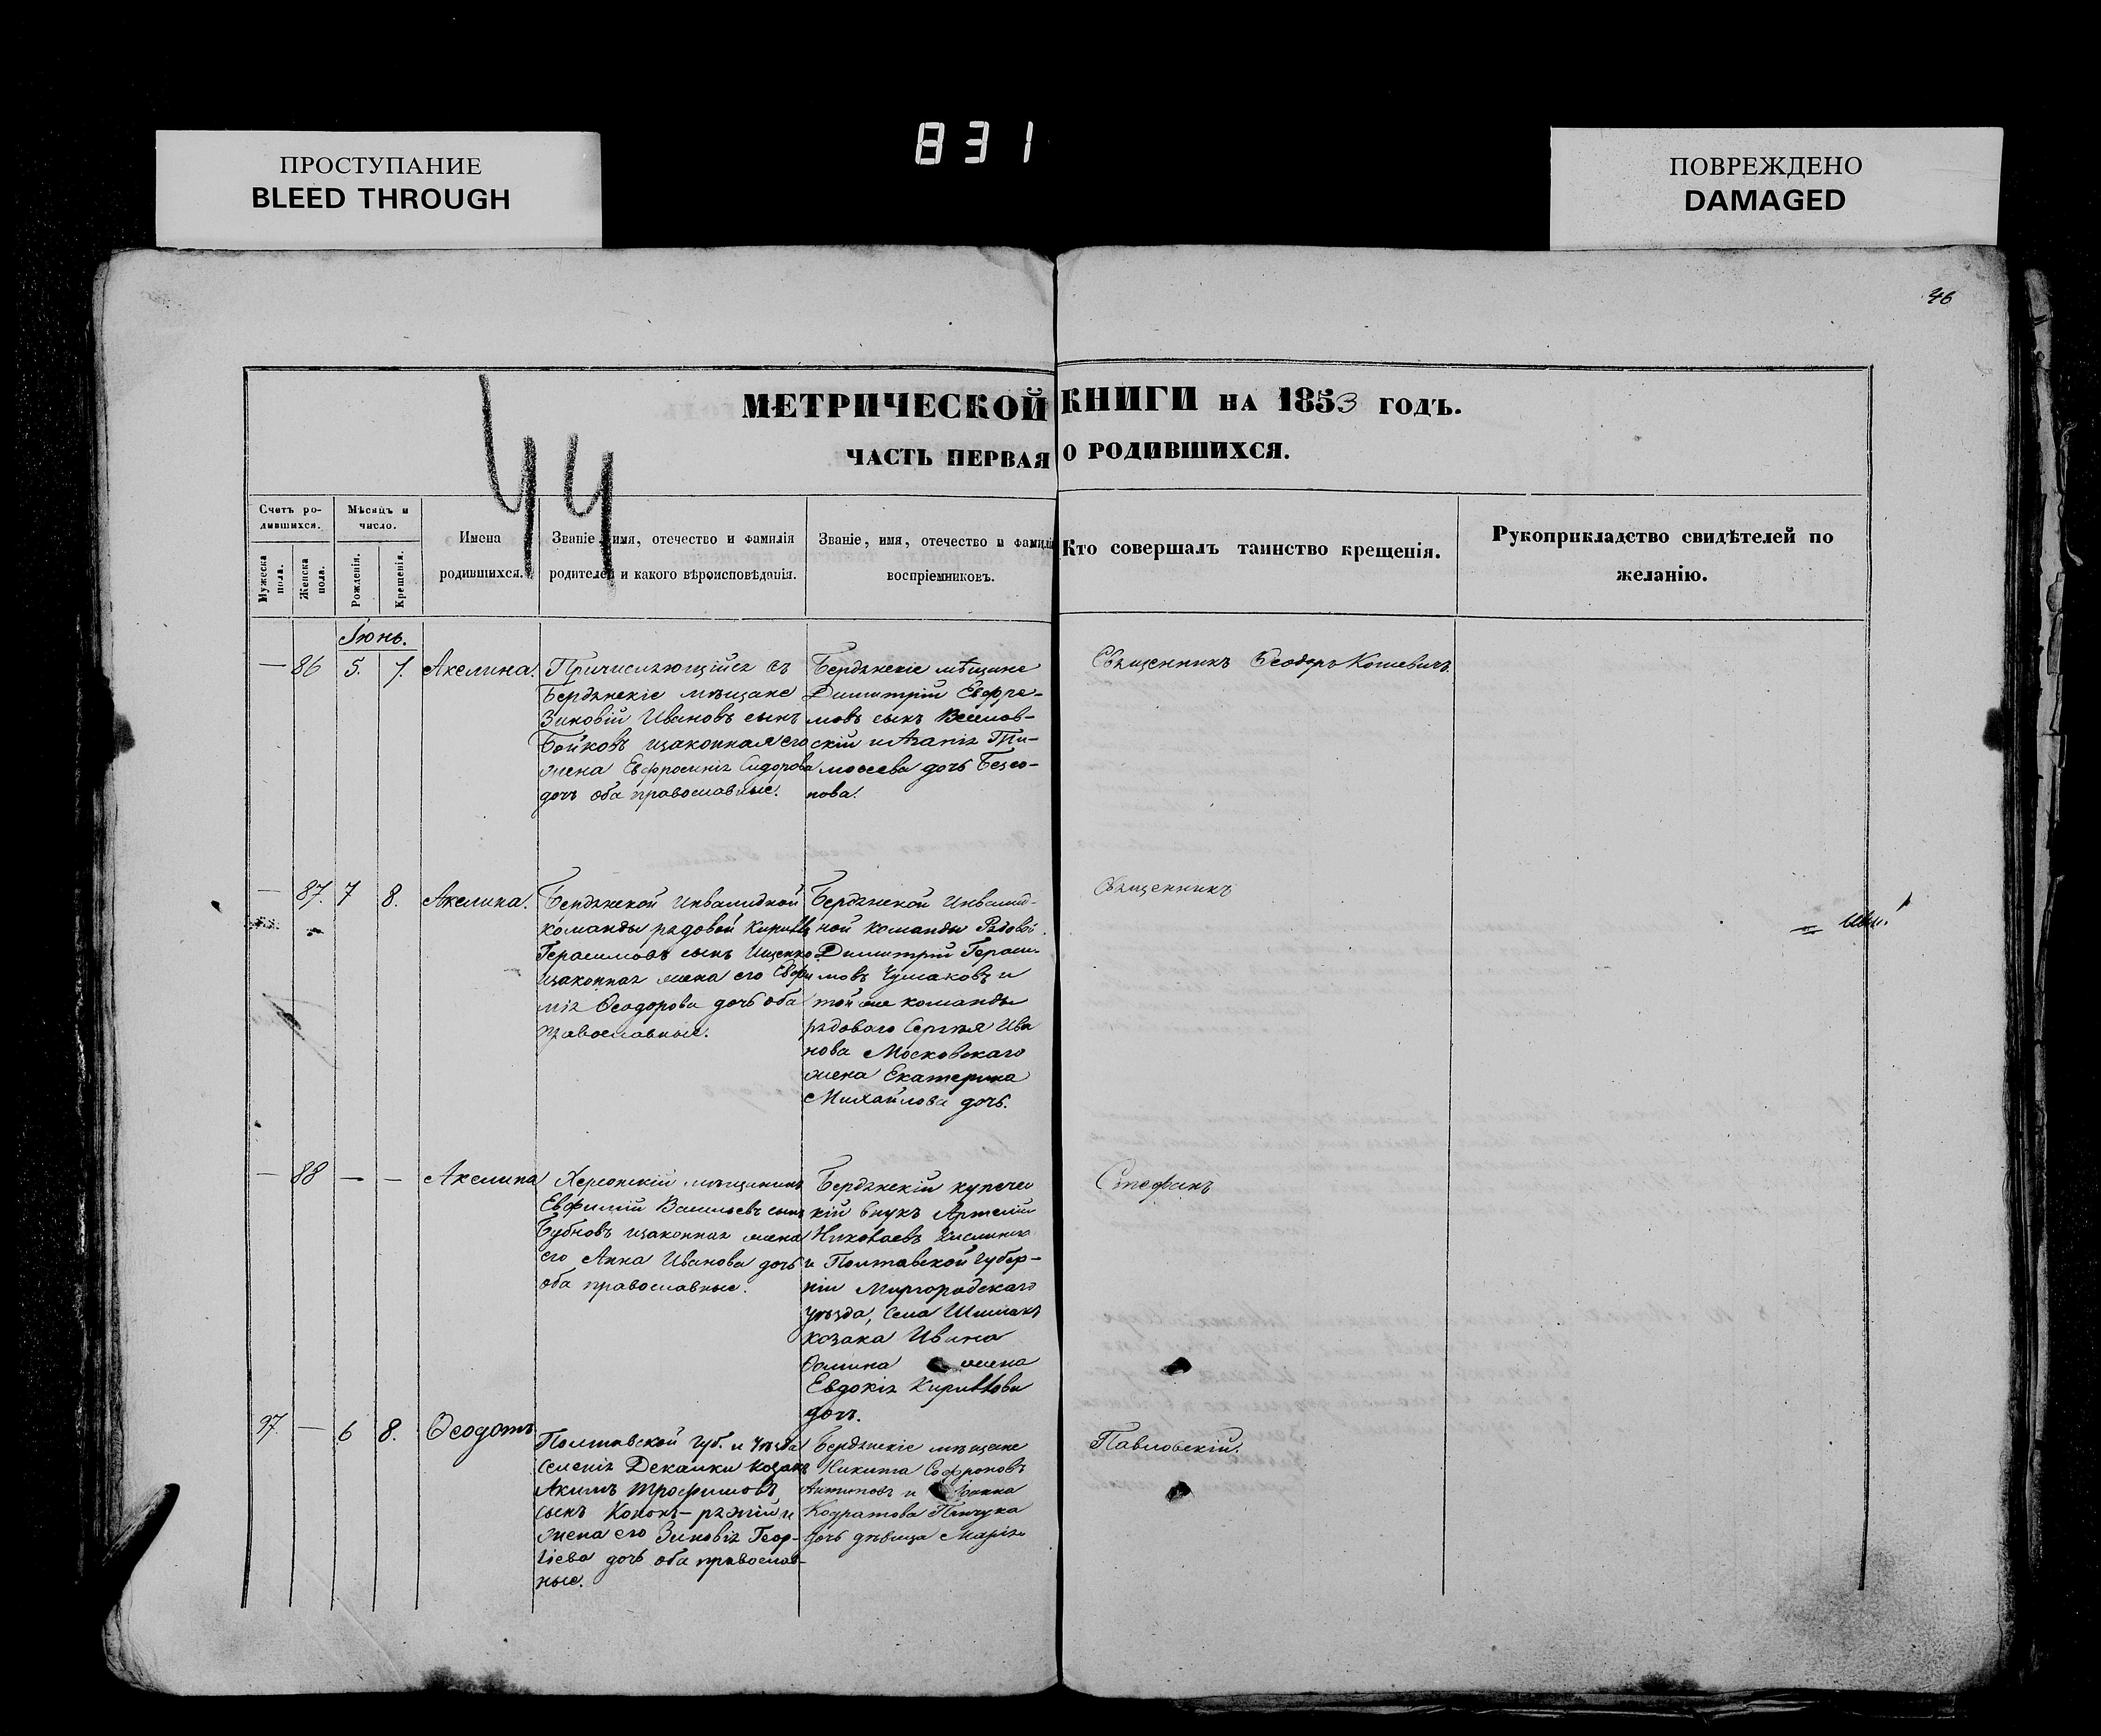 831
ПРОСТУПАНИЕ
BLEED THROUGH
ПОВРЕЖДЕНО
DAMAGED
46
44
МЕТРИЧЕСКОЙ КНИГИ НА 1853 ГОДЪ.
ЧАСТЬ ПЕРВАЯ О РОДИВШИХСЯ.
Счетъ ро-
дившихся.
Мужеска
пола.
Женска
пола.
Мѣсяцъ и
число.
Рожденія.
Крещенія.
Имена
родившихся.
Званіе, имя, отечество и фамилія
родителей и какого вѣроисповѣданія.
Званіе, имя, отечество и фамилія
воспріемниковъ.
Кто совершалъ таинство крещенія.
Рукоприкладство свидѣтелей по
желанію.
Іюнь.
— 86 5. 7. Акелина.
Причисляющійся въ
Бердянскіе мѣщане
Зиновій Ивановъ сынъ
Бойковъ изаконная его
жена Евфросинія Сидорова
дочь оба православные.
Бердянскіе мѣщане
Димитрій Евфре-
мовъ сынъ
скій и Агапія Ти-
моѳеева дочь
нова.
Священникъ Ѳеодоръ
— 87. 7 8. Акелина.
Бердянской Инвалидной
команды рядовой Кириллъ
Герасимовъ сынъ Ищенко
изаконная жена его Евфи
мія Ѳеодорова дочь оба
православные.
Бердянской Инвалид-
ной команды Рядовой
Димитрій Гераси-
мовъ Чумаковъ и
той же команды
рядоваго Сергѣя Ива
нова Московскаго
жена Екатерина
Михайлова дочь.
Священникъ
— 88 — — Акелина
Херсонскій мѣщанинъ
Евфимій Васильевъ сынъ
Бубновъ изаконная жена
его Анна Иванова дочь
оба православные.
Бердянскій купечес
кій внукъ
Николаевъ
и Полтавской Губер-
ніи Миргородскаго
уѣзда, села Шишакъ
козака Ивана
жена
Евдокія Кириллова
дочь.
Стефанъ
97. — 6 8. Ѳеодотъ
Полтавской Губ. и Уѣзда
селенія Декамки козакъ
Акимъ Трофимовъ
сынъ и
жена его Зиновія Геор-
гіева дочь оба православ-
ные.
Бердянскіе мѣщане
Никита Софроновъ
Антиповъ и
Кодратова Пинчука
дочь дѣвица Марія
Павловскій.